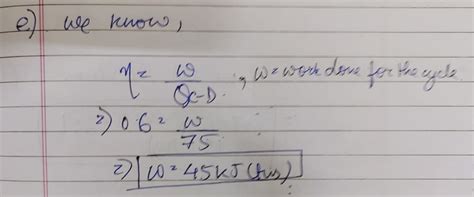 e.) we know,
η = w / Q_C-D , w = work done for the cycle
=) 0.6 = w / 75
=) w = 45 kJ (Ans)